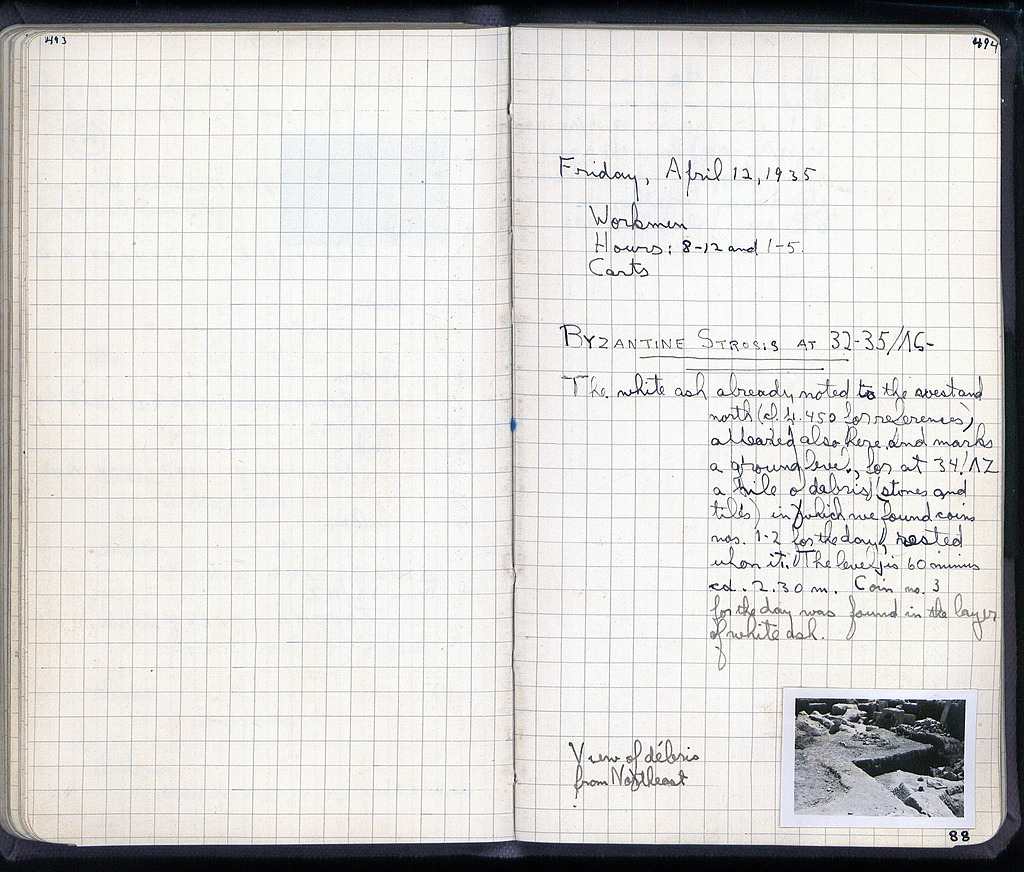 493
494
Friday, April 12, 1935
Workmen
Hours: 8-12 and 1-5.
Carts
BYZANTINE STROSIS AT 32-35/
The white ash already noted to the west and
north (cf. p. 450 for references)
appeared also here and marks
a ground level, for at 34/
a pile of debris (stones and
tiles) in which we found coins
nos. 1-2 for the day, rested
upon it. The level is 60 minus
ca. 2.30 m. Coin no. 3
for the day was found in the layer
of white ash.
View of débris
from Northeast
88